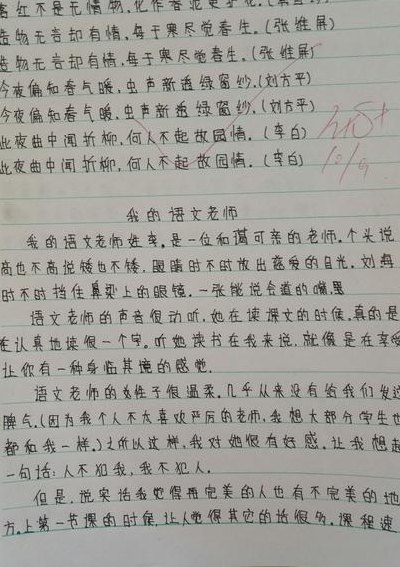 落红不是无情物,化作春泥更护花.(龚自珍)
造物无言却有情,每于寒尽觉春生.(张维屏)
造物无言却有情,每于寒尽觉春生.(张维屏)
今夜偏知春气暖,虫声新透绿窗纱.(刘方平)
今夜偏知春气暖,虫声新透绿窗纱.(刘方平)
此夜曲中闻折柳,何人不起故园情.(李白)
此夜曲中闻折柳,何人不起故园情.(李白)
10/9
我的语文老师
我的语文老师姓李.是一位和蔼可亲的老师.个头说
高也不高说矮也不矮.眼睛时不时放出慈爱的目光.刘海
时不时挡住鼻梁上的眼镜.一张能说会道的嘴里
语文老师的声音很动听.她在读课文的时候.真的是
认真地读很一个字.听她读书在我来说.就像是在享受
让你有一种身临其境的感觉.
语文老师的性子很温柔.几乎从来没有给我们发过
脾气.(因为我个人不太喜欢严厉的老师,我想大部分学生也
都和我一样.)之所以这样,我对她很有好感.让我想起
一句话:人不犯我,我不犯人.
但是.说实话我觉得再完美的人也有不完美的地
方.上第一节课的时候.让人觉得其它的话很多.课程速